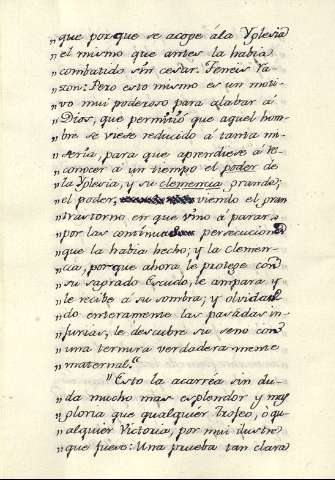 "que porque se acoge á la Yglesia
"el mismo que antes la habia
"combatido sin cesar. Teneis ra-
"zon: Pero esto mismo es un moti-
"vo mui poderoso para alabar á
"Dios, que permitió que aquel hom-
"bre se viese reducido á tanta mi-
"seria, para que aprendiese á re-
"conocer á un tiempo el poder de
"la Yglesia, y su clemencia grande;
"el poder, viendo el gran
"trastorno en que vino á parar
"por las continuas persecuciones
"que la habia hecho; y la clemen-
"cia, porque ahora le protege con
"su sagrado Escudo, le ampara y
"le recibe á su sombra; y olvidan-
"do enteramente las pasadas in-
"jurias, le descubre su seno con
"una ternura verdaderamente
"maternal."
"Esto la acarréa sin du-
"da mucho mas esplendor y mas
"gloria que qualquier trofeo, ó qu-
"alquier Victoria, por mui ilustre
"que fuese: Una prueba tan clara